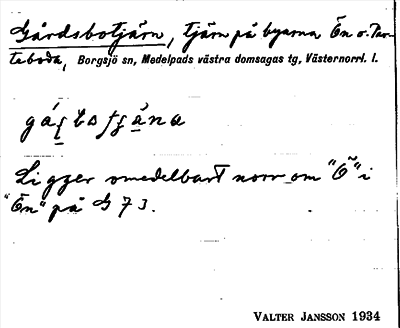 Gårdsbotjärn, tjärn på byarna Ön o. Tar-
teboda, Borgsjö sn, Medelpads västra domsagas tg, Västernorrl. l.
Ligger omedelbart norr om "Ö" i
"Ön" på G 73.
VALTER JANSSON 1934